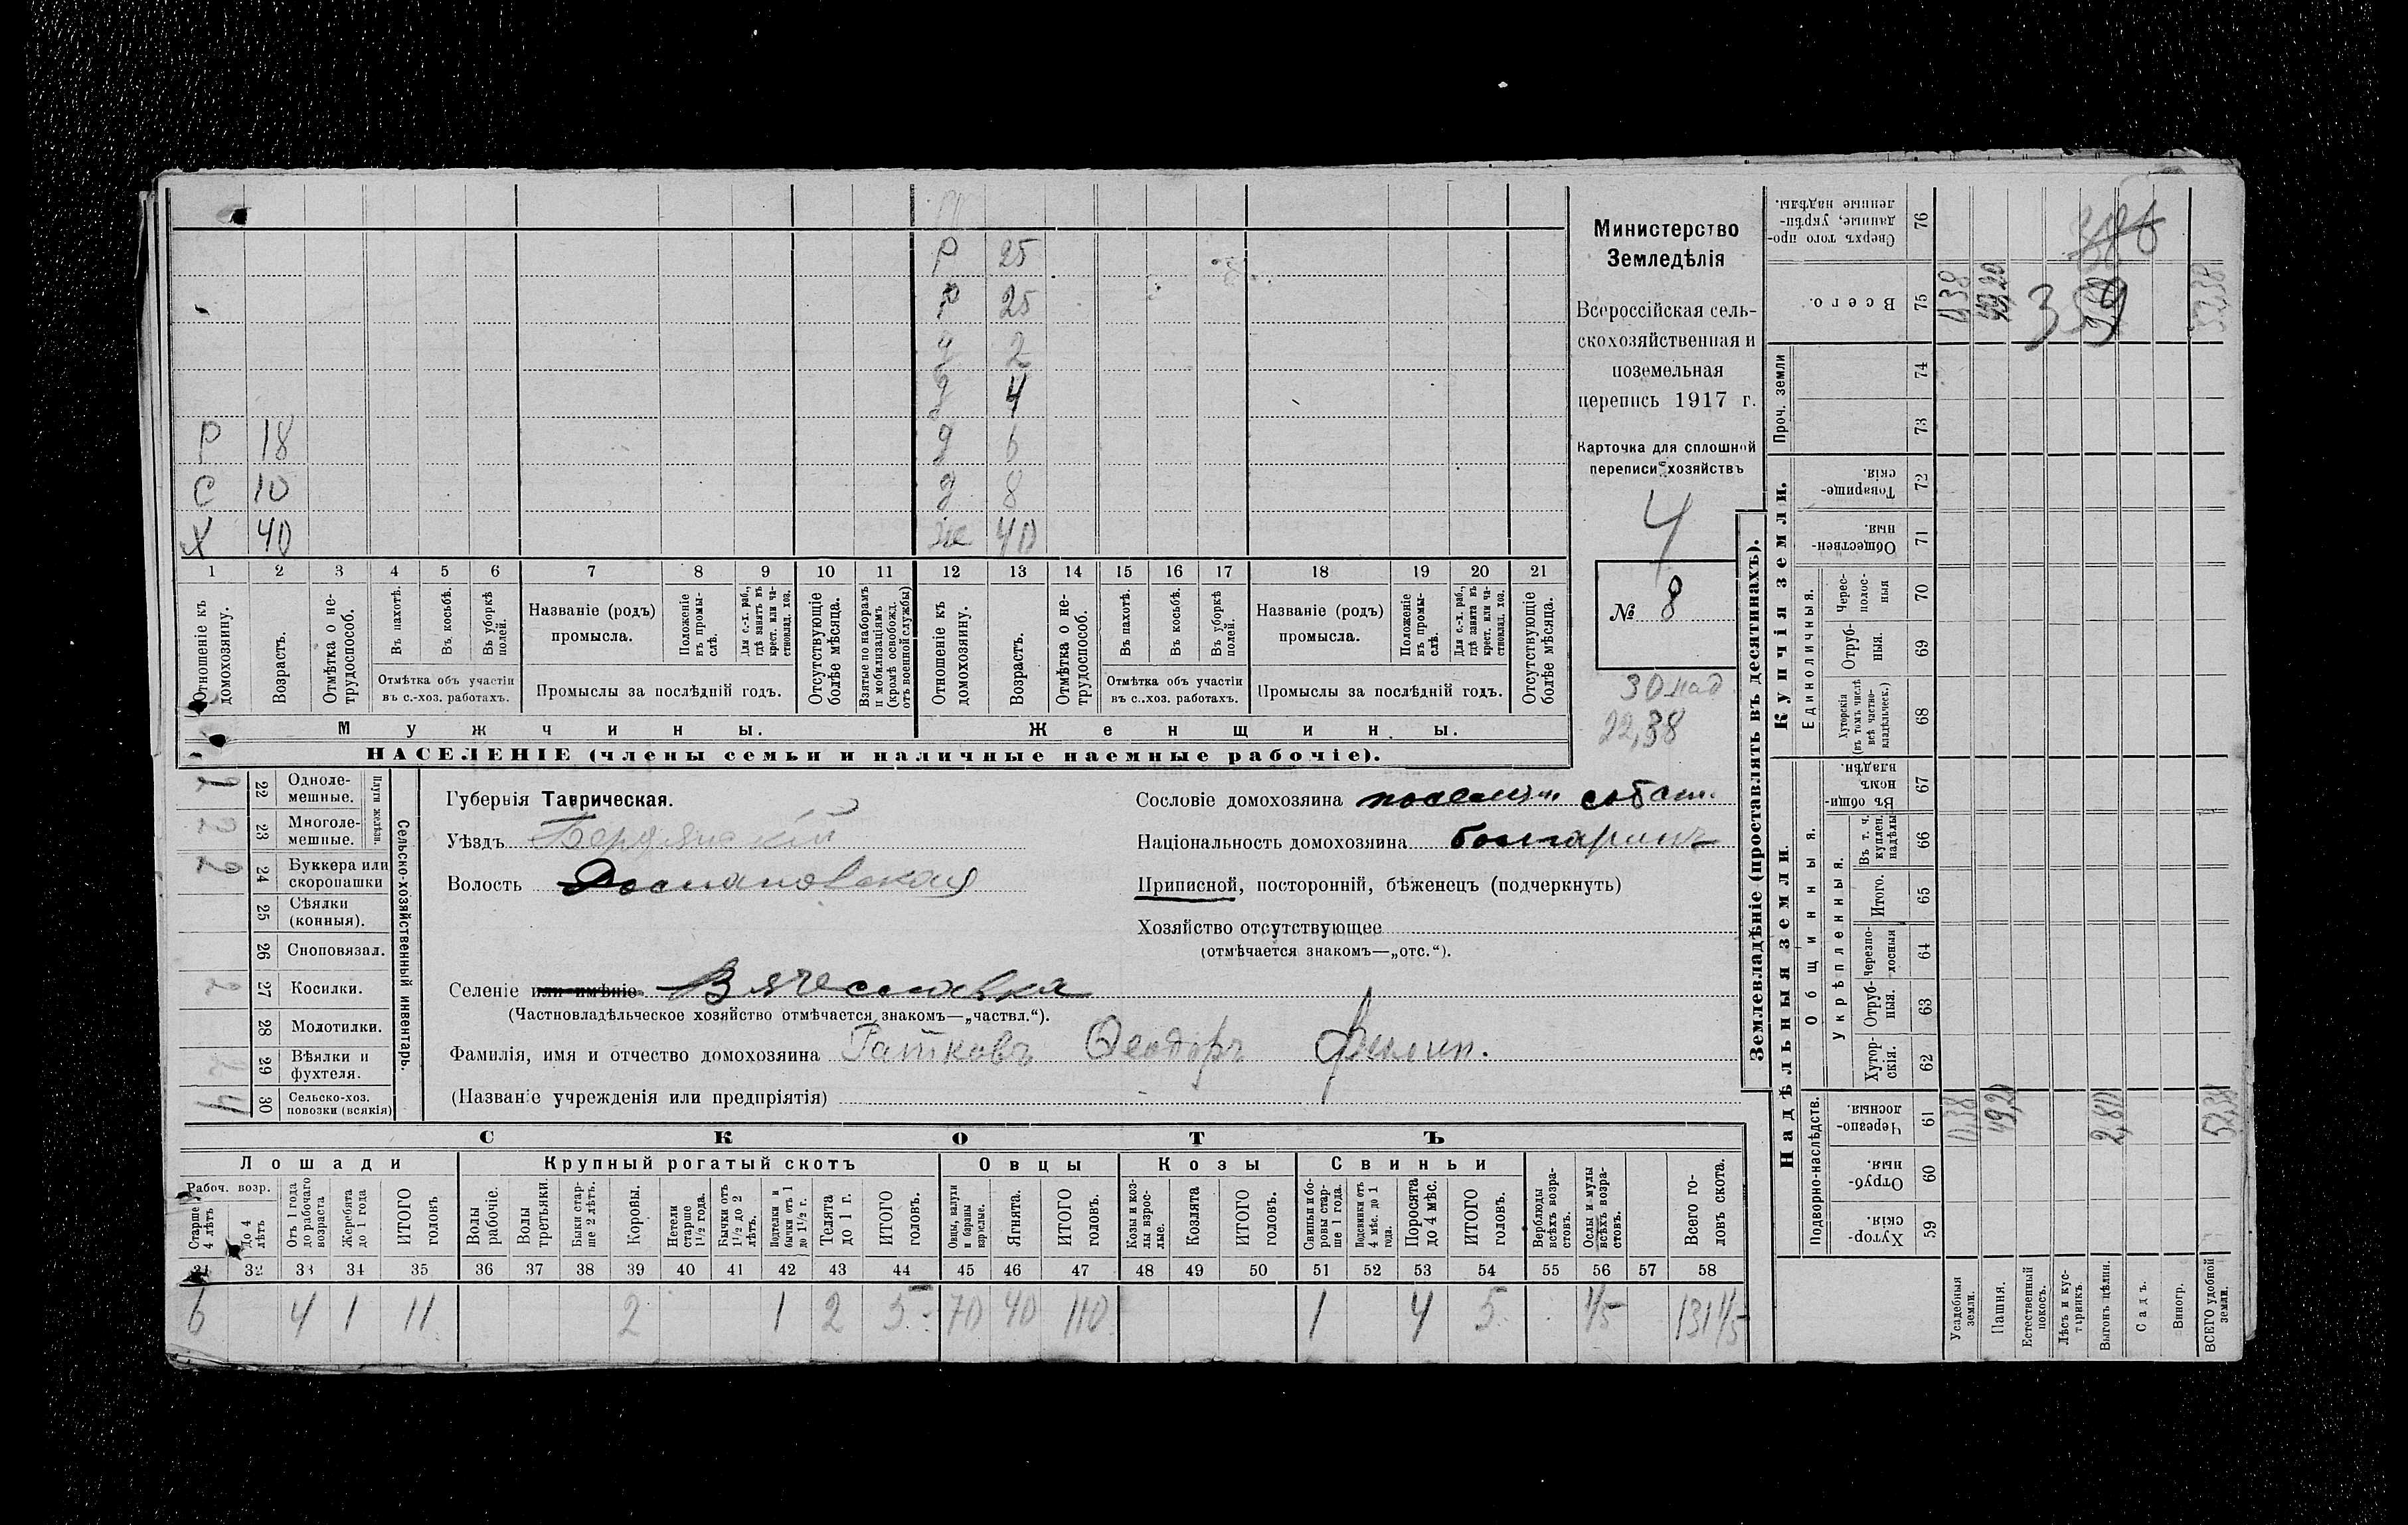 Р 25
Р 25
д 2
д 4
Р 18 д 6
С 10 д 8
Х 40 ж 40
1 2 3 4 5 6 7 8 9 10 11 12 13 14 15 16 17 18 19 20 21
Отношеніе къ домохозяину.
Возрастъ.
Отмѣтка о нетрудоспособ.
Въ пахотѣ.
Въ косьбѣ.
Въ уборкѣ полей.
Отмѣтка объ участіи
въ с.-хоз. работахъ.
Названіе (родъ)
промысла.
Положеніе въ промыслѣ.
Для с.-х. раб., гдѣ занятъ въ крест. или частновлад. хоз.
Промыслы за послѣдній годъ.
Отсутствующіе болѣе мѣсяца.
Взятые по наборамъ и мобилизаціямъ (кромѣ освобожд. отъ военной службы)
Отношеніе къ домохозяину.
Возрастъ.
Отмѣтка о нетрудоспособ.
Въ пахотѣ.
Въ косьбѣ.
Въ уборкѣ полей.
Отмѣтка объ участіи
въ с..хоз. работахъ.
Названіе (родъ)
промысла.
Положеніе въ промыслѣ.
Для с.-х. раб., гдѣ занята въ крест. или частновлад. хоз.
Промыслы за послѣдній годъ.
Отсутствующіе болѣе мѣсяца.
Мужчины. Женщины.
НАСЕЛЕНІЕ (члены семьи и наличные наемные рабочіе).
Министерство
Земледѣлія
Всероссійская сель-
скохозяйственная и
поземельная
перепись 1917 г.
Карточка для сплошной
переписи хозяйствъ
4
№ 8
30 над
22,38
Сельско-хозяйственный инвентарь.
Плуги желѣзн.
22 Одноле-
мешные.
23 Многоле-
мешные.
2
24 Буккера или
скоропашки
25 Сѣялки
(конныя).
26 Сноповязал.
27 Косилки.
28 Молотилки.
29 Вѣялки и
фухтеля.
4
30 Сельско-хоз.
повозки (всякія)
Губернія Таврическая.
Уѣздъ Бердянскій
Волость Романовская
Селеніе или имѣніе Вячеславка
(Частновладѣльческое хозяйство отмѣчается знакомъ—„частвл.“).
Фамилія, имя и отчество домохозяина Ратковъ Ѳеодоръ
(Названіе учрежденія или предпріятія)
Сословіе домохозяина поселян собств.
Національность домохозяина болгаринъ
Приписной, посторонній, бѣженецъ (подчеркнуть)
Хозяйство отсутствующее
(отмѣчается знакомъ—„отс.“).
СКОТЪ
Лошади Крупный рогатый скотъ Овцы Козы Свиньи
Рабоч. возр.
Старше 4 лѣтъ
До 4 лѣтъ
Отъ 1 года до рабочаго возраста
Жеребята до 1 года
ИТОГО головъ
Волы рабочіе.
Волы третьяки.
Быки старше 2 лѣтъ.
Коровы.
Нетели старше 1½ года.
Бычки отъ 1½ до 2 лѣтъ.
Подтелки и бычки отъ 1 до 1½ г.
Телята до 1 г.
ИТОГО головъ.
Овцы, валухи и бараны взрослые.
Ягнята.
ИТОГО головъ.
Козы и козлы взрослые.
Козлята
ИТОГО головъ.
Свиньи и боровы старше 1 года.
Подсвинки отъ 4 мѣс. до 1 года.
Поросята до 4 мѣс.
ИТОГО головъ.
Верблюды всѣхъ возрастовъ.
Ослы и мулы всѣхъ возрастовъ.
Всего головъ скота.
31 32 33 34 35 36 37 38 39 40 41 42 43 44 45 46 47 48 49 50 51 52 53 54 55 56 57 58
6 4 1 11 2 1 2 5 70 40 110 1 4 5 1/5 131 1/5
Землевладѣніе (проставлять въ десятинахъ).
Надѣльныя земли
Купчія земли.
Проч. земли
Подворно-наслѣдств.
Общинныя.
Укрѣпленныя.
Единоличныя.
Хуторскія. 59
Отрубныя. 60
Черезполосныя. 61
Хуторскія. 62
Отрубныя. 63
Черезполосныя 64
Итого. 65
Въ т. ч. куплен. надѣлы 66
Въ общинномъ владѣн. 67
Хуторскія (въ томъ числѣ всѣ частновладѣльческ.) 68
Отрубныя. 69
Черезполосныя 70
Общественныя. 71
Товарищескія. 72
73
74
Всего. 75
Сверхъ того проданные, укрѣпленные надѣлы. 76
Усадебныя земли. 0,38
Пашня. 49,20 49,20
Естественный покосъ.
Лѣсъ и кустарникъ.
Выгонъ цѣлин. 2,80
Садъ.
Виногр.
ВСЕГО удобной земли. 52,38 52,38
359